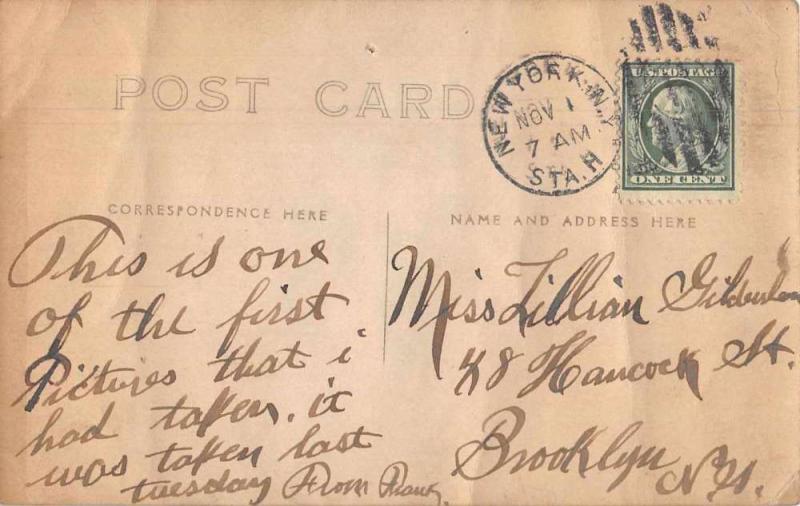 POST CARD
NEW YORK, N.Y.
NOV 1
7 AM
STA. H
U.S. POSTAGE
ONE CENT
CORRESPONDENCE HERE
This is one
of the first
Pictures that i
had taken. it
was taken last
tuesday From Frank.
NAME AND ADDRESS HERE
Miss Lillian
48 Hancock St.
Brooklyn
N.Y.